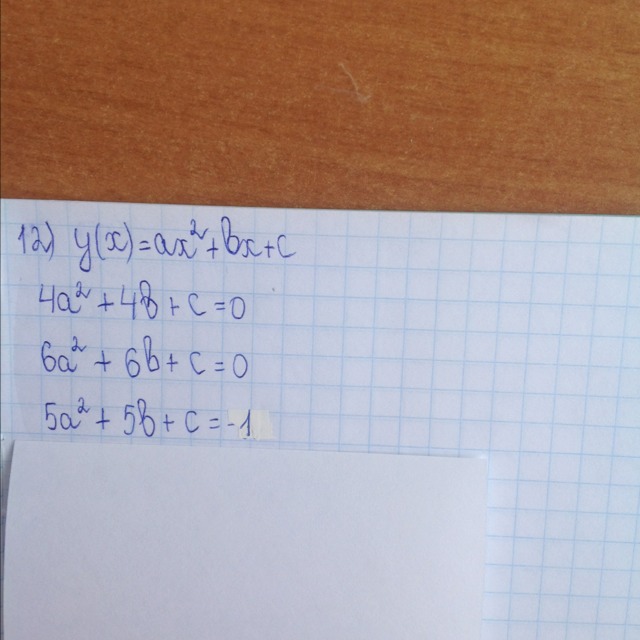 12) y(x)=ax²+bx+c
4a²+4b+c=0
6a²+6b+c=0
5a²+5b+c=-1